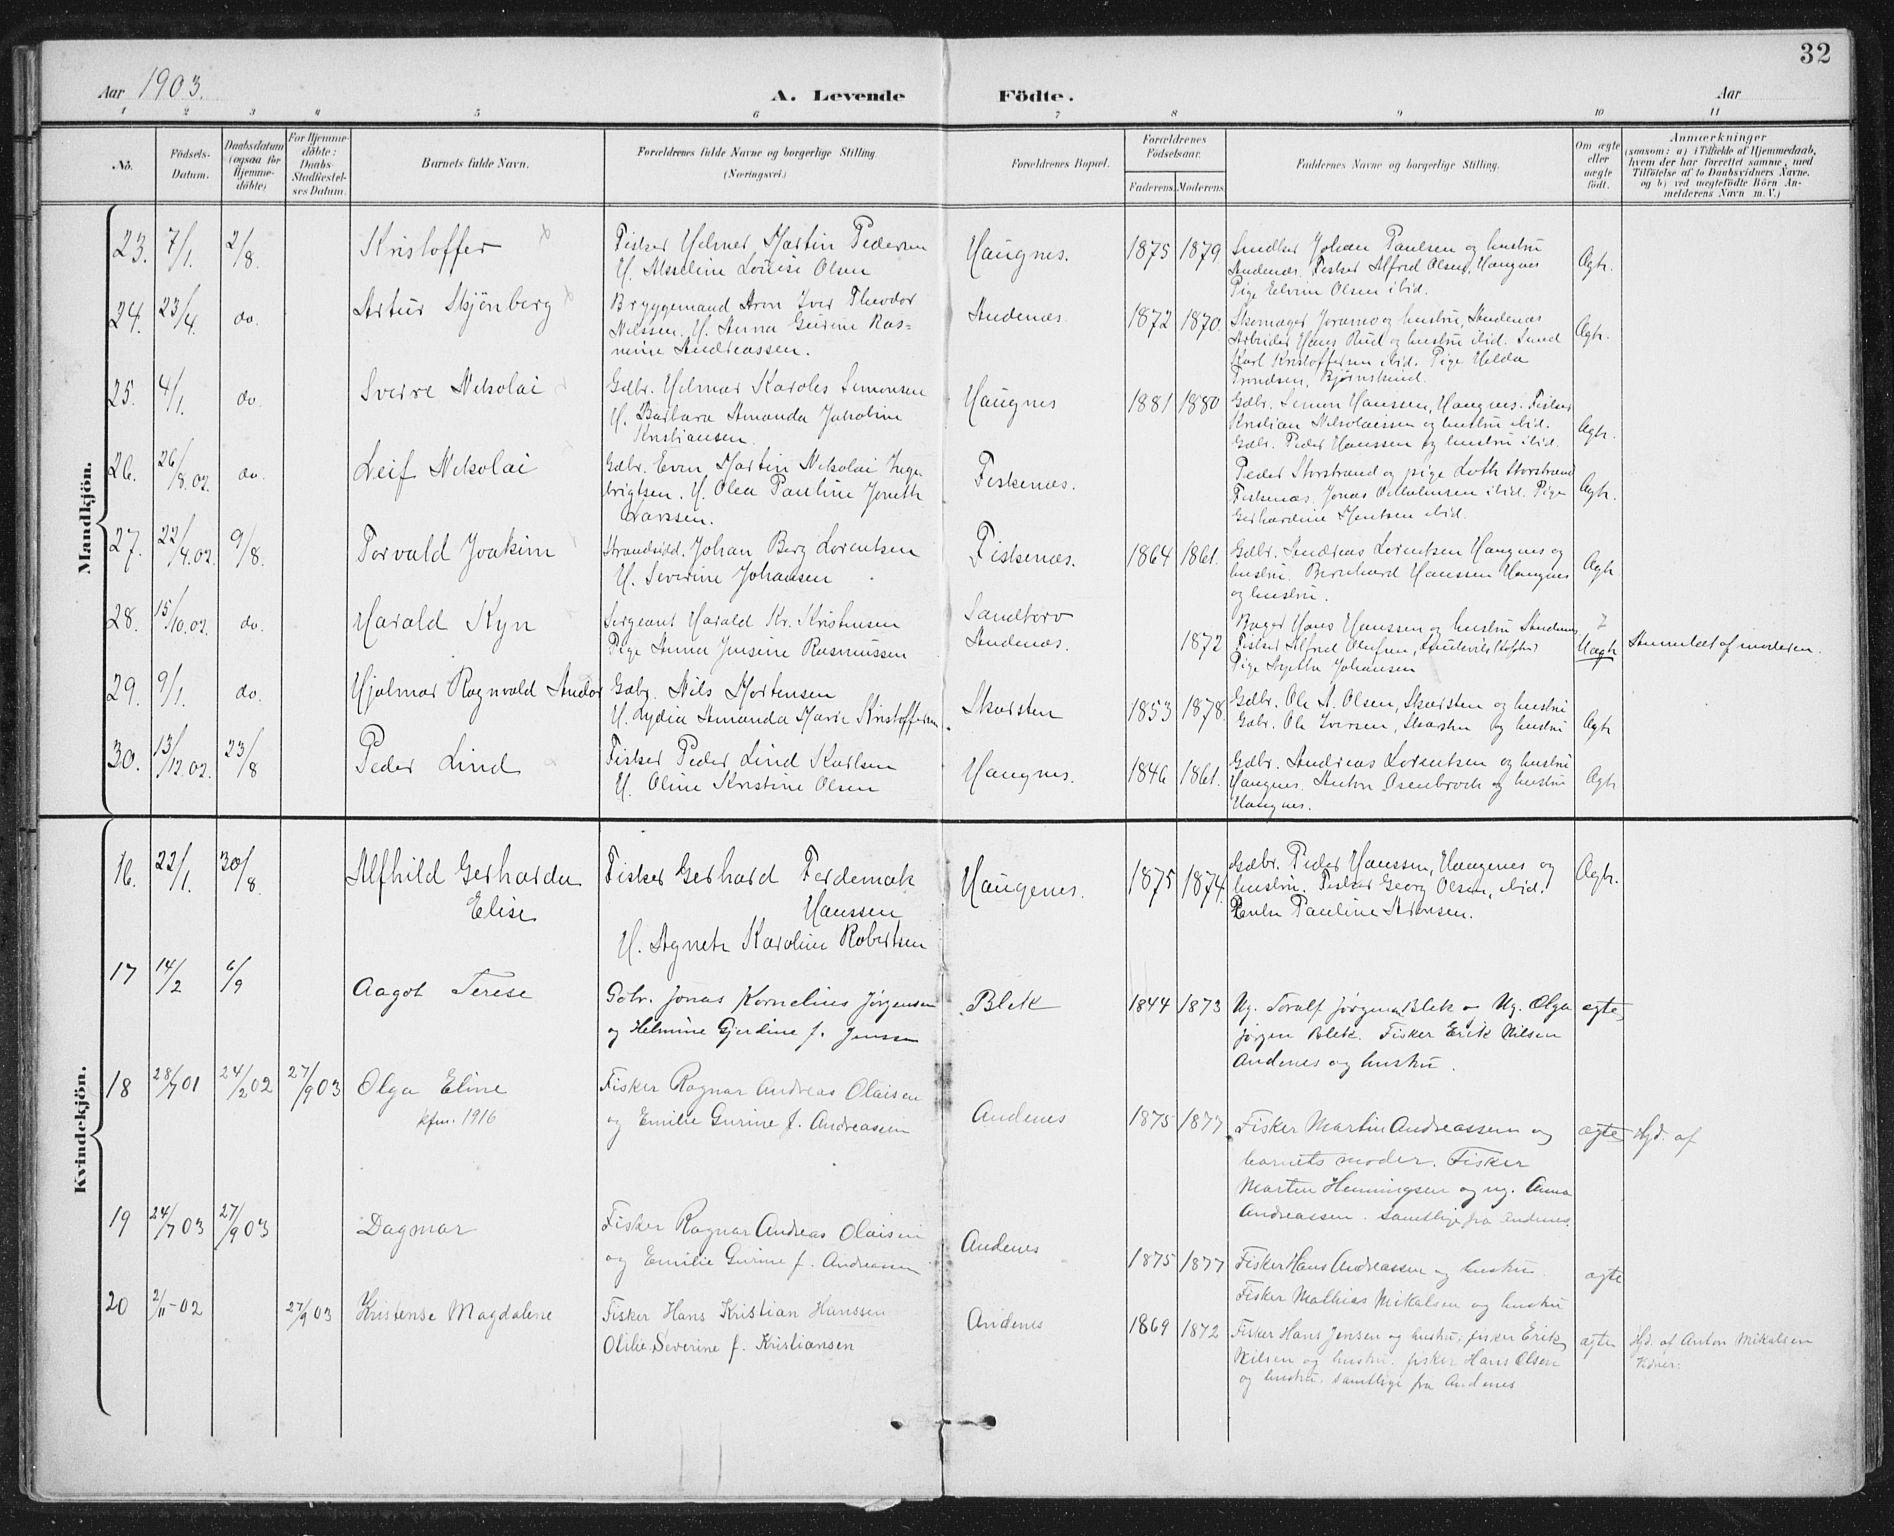 32
Aar 1903. A. Levende Födte. Aar
1 2 3 4 5 6 7 8 9 10 11
No.
Födsels-
Datum.
Daabsdatum
(ogsaa for
Hjemme-
döbte)
For Hjemme-
döbte:
Daabs-
Stadfæstel-
ses Datum.
Barnets fulde Navn.
Forældrenes fulde Navne og borgerlige Stilling.
(Næringsvei.)
Forældrenes Bopæl.
Forældrenes
Födselsaar.
Faderens. Moderens.
Faddernes Navne og borgerlige Stilling.
Om ægte
eller
uægte
födt.
Anmærkninger
(saasom: a) i Tilfælde af Hjemmedaab,
hvem der har forrettet samme, med
Tilföielse af to Daabsvidners Navne,
og b) ved uægtefödte Börn An-
melderens Navn m. V.)
Mandkjön.
23. 7/1. 2/8. Kristoffer
Fisker Helmer Martin Pedersen
H. Louise Olsen
Haugnes. 1875 1879
Johan Paulsen og hustru
Andenæs. Fisker Alfred Olsen, Haugnes
Pige Elvine Olsen ibid.
Ægte.
24. 23/4. do. Artur Skjönberg
Bryggemand Aron Iver Theodor
Nilssen. H. Anna Gurine Ras-
mine Andreassen.
Andenæs. 1872 1870
Skomager og hustru, Andenæs
Arbeider Hans Rud og hustru ibid.
Karl Kristoffersen ibid. Pige Helda
Trondsen, Bjørnskind.
Ægte.
25. 4/1. do. Sverre Nikolai
Gdbr. Helmer Karoles Simonsen
H. Barbara Amanda Jakobine
Kristiansen.
Haugnes 1881 1880
Gdbr. Simon Hanssen, Haugnes. Fisker
Kristian Nikolaissen og hustru ibid.
Gdbr. Peder Hanssen og hustru ibid.
Ægte.
26. 26/8.02. do. Leif Nikolai
Gdbr. Even Martin Nikolai Inge-
brigtsen. H. Olea Pauline Joneth
Larssen.
Fiskenæs.
Peder Storstrand og pige Storstrand
Fiskenæs. Jonas Vilhelmsen ibid. Pige
Gerhardine ibid.
Ægte.
27. 22/4.02. 9/8. Torvald Joakim
Strandsidd. Johan Berg Lorentsen
H. Severine Johansen
Fiskenæs. 1864 1861.
Gdbr. Andreas Lorentsen Haugnes og
hustru. Bernhard Hanssen Haugnes
og hustru.
Ægte
28. 15/10.02. do. Harald Kyn
Sergeant Harald Kr. Kristensen
Pige Anna Jensine Rasmussen
Sandtorv
Andenæs. 1872
Bager Hans Hanssen og hustru Andenæs
Fisker Alfred
Pige Johansen
Uægte
Anmeldt af moderen.
29. 9/1. do. Hjalmar Ragnvald Andor
Gdbr. Nils Mortensen
H. Lydia Amanda Marie Kristoffersen
Skarsten 1853 1878.
Gdbr. Ole A. Olsen, Skarsten og hustru
Gdbr. Ole Iversen, Skarsten og hustru
Ægte
30. 13/12.02. 23/8 Peder Lind
Fisker Peder Lind Karlsen
H. Oline Kristine Olsen
Haugnes. 1846 1861.
Gdbr. Andreas Lorentsen og hustru
Haugnes. Anton Osenbroch og hustru
Haugnes.
Ægte
Kvindekjön.
16. 22/1. 30/8. Alfhild Gerharda
Elise
Fisker Gerhard Ferdemak
Hanssen
H. Agnete Karoline Robertsen
Haugenes. 1875 1874.
Gdbr. Peder Hanssen, Haugenes og
hustru. Fisker Georg Olsen, ibid.
Pauline
Ægte.
17 14/2 6/9 Aagot Terese
Gbr. Jonas Kornelius Jørgensen
og Helmine Gjerdine f. Jenssen
Blek 1844 1873
Ug. Toralf Jørgensen Blek og Ug. Olga
Jörgen Blek. Fisker Erik Nilsen
Andenes og hustru.
ægte
18 28/7 01 24/2 02 27/9 03 Olga Eline
kfm. 1916
Fisker Ragnar Andreas Olaisen
og Emilie Gurine f. Andreassen
Andenes 1875 1877
Fisker Martin Andreassen og
barnets moder. Fisker
Martin Henningsen og ug. Anna
Andreassen. samtlige fra Andenes.
ægte
Hjd. af
19 24/7 03 27/9 03 Dagmar
Fisker Ragnar Andreas Olaisen
og Emilie Gurine f. Andreassen
Andenes 1875 1877
Fisker Hans Andreassen og hustru.
Fisker Mathias Mikalsen og hustru
ægte
20 2/11-02 27/9 03 Kristense Magdalene
Fisker Hans Kristian Hanssen
Olilie Severine f. Kristiansen
Andenes 1869 1872
Fisker Hans Jensen og hustru; fisker Erik
Nilsen og hustru. fisker Hans Olsen
og hustru. samtlige fra Andenes
ægte
Hjd. af Anton Mikalsen